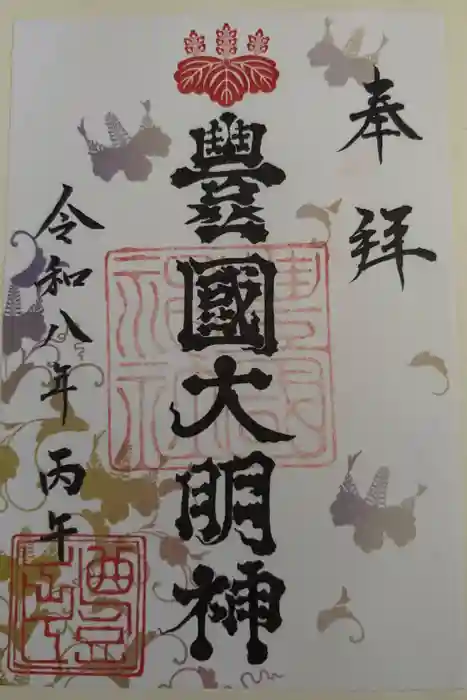 奉拝
豐國大明神
令和八年 丙午